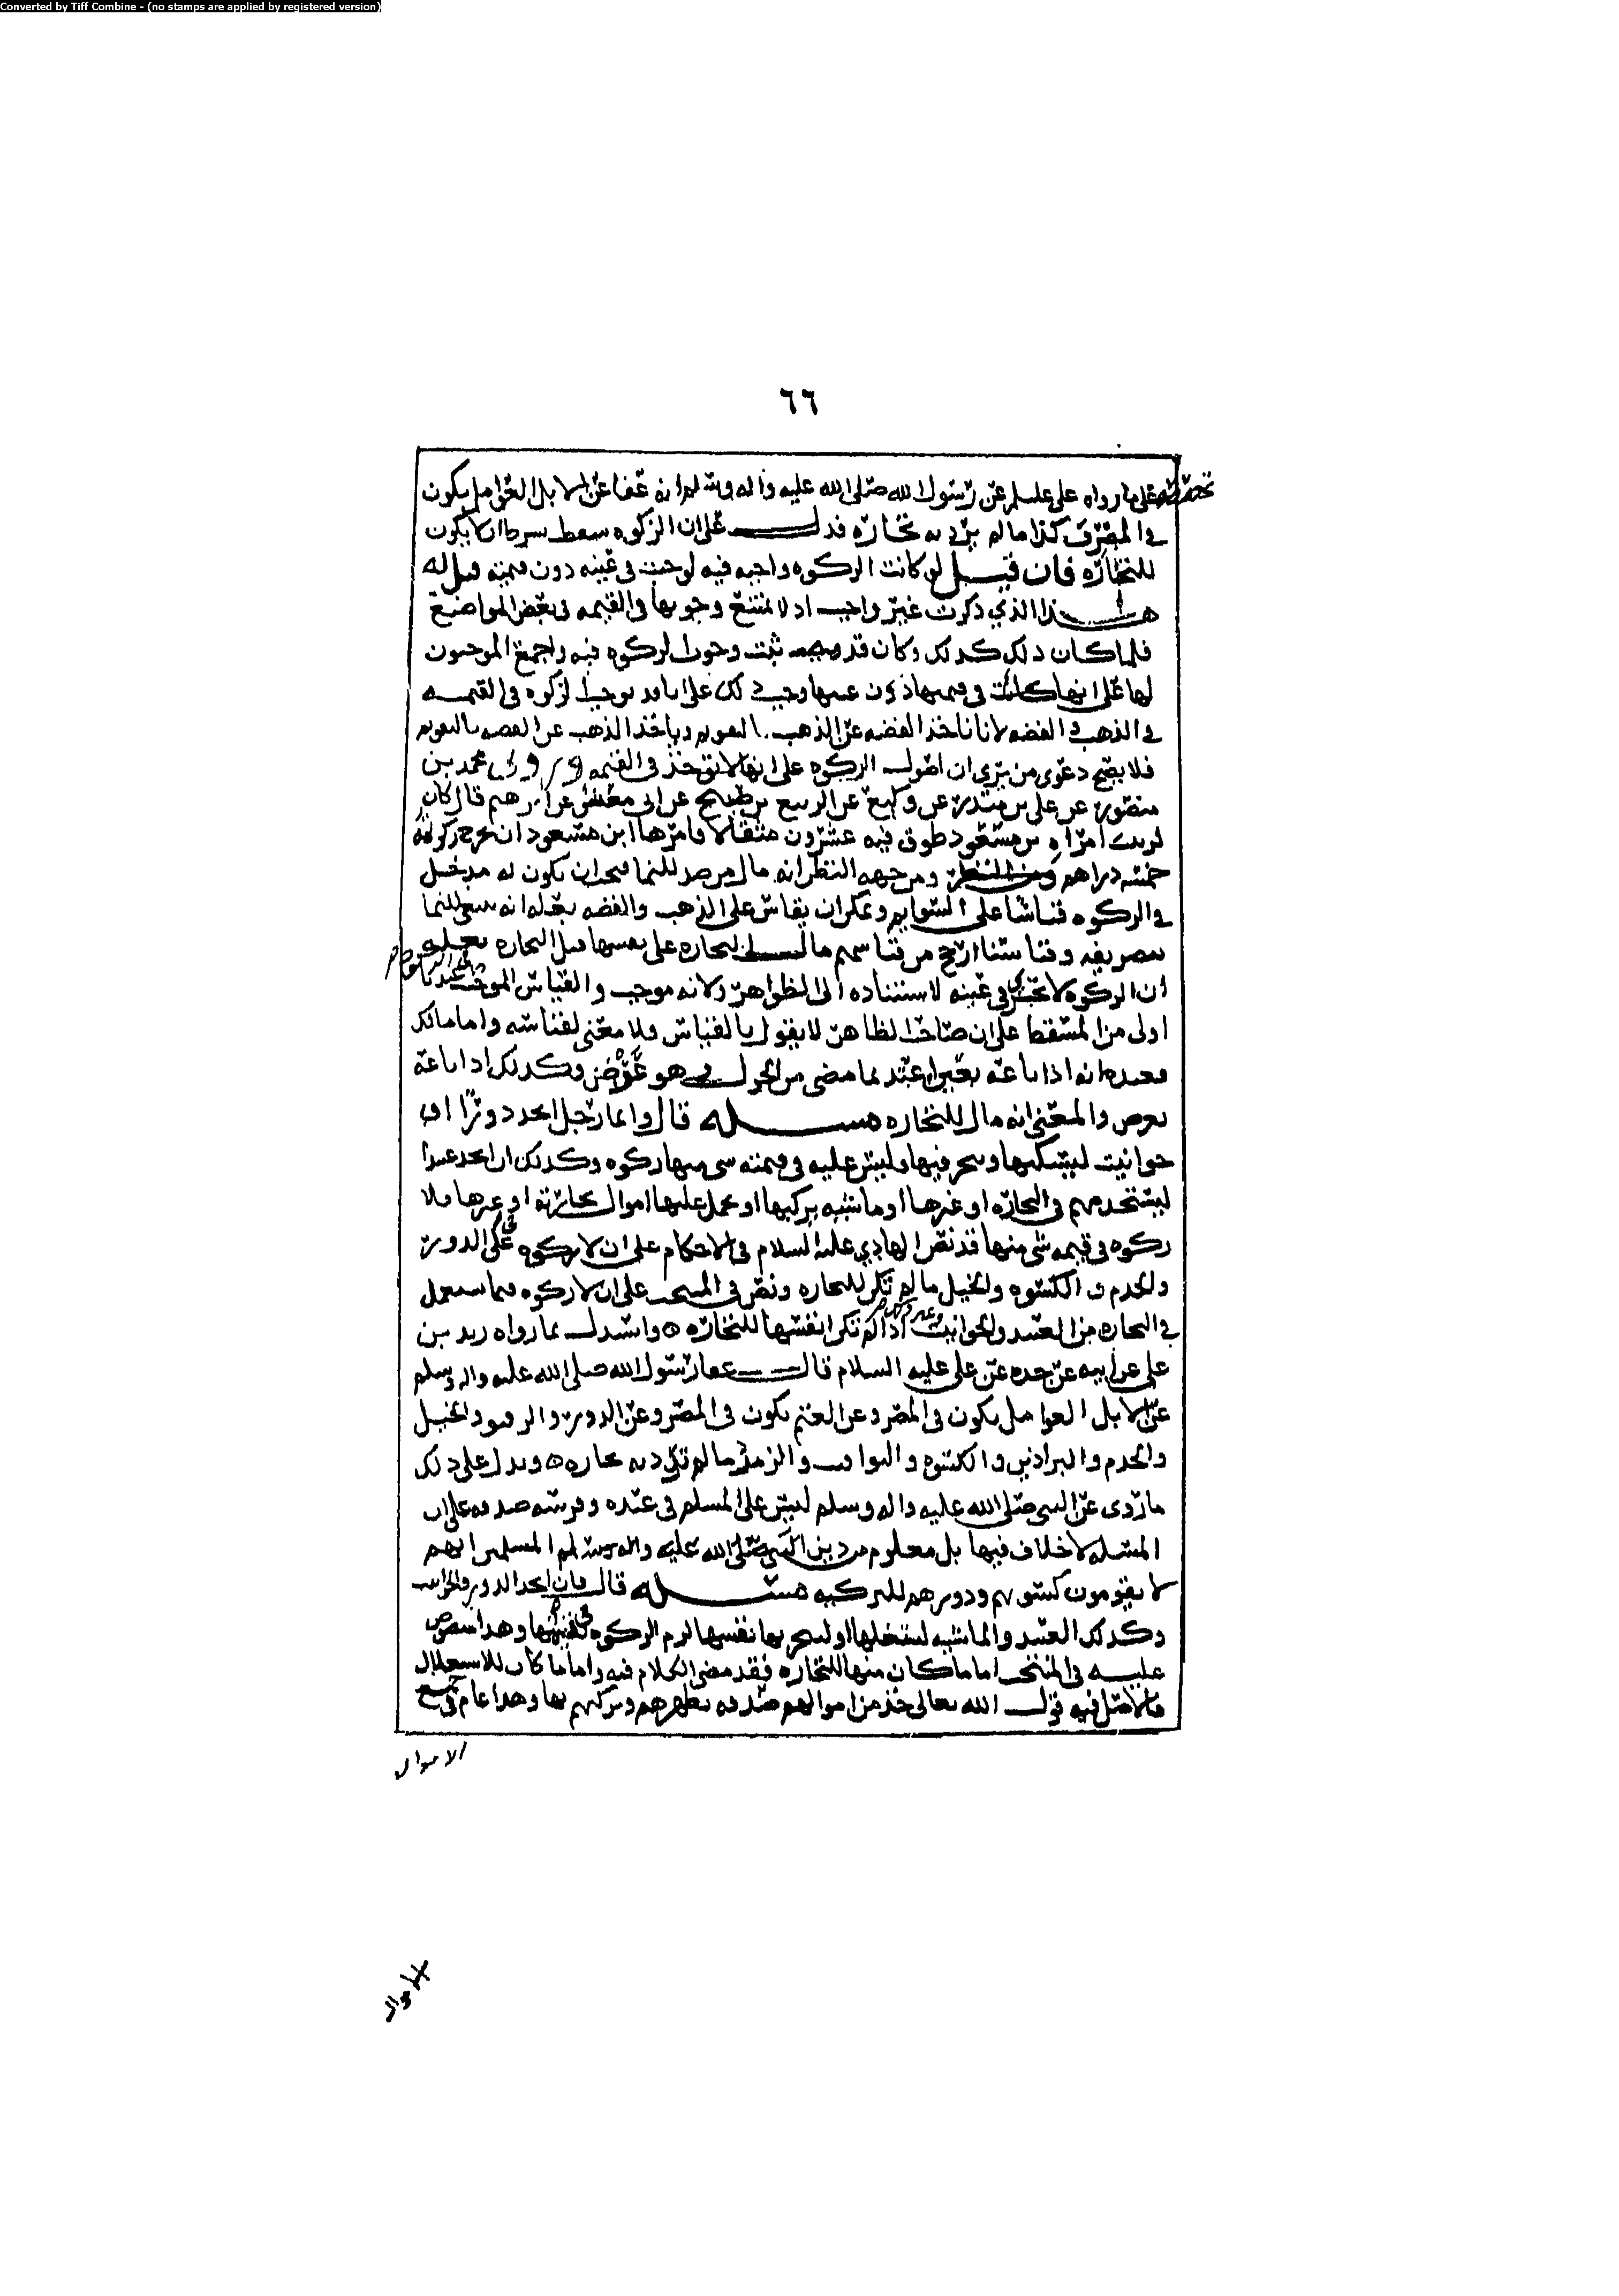 Converted by Tiff Combine - (no stamps are applied by registered version)
٦٦
على ما رواه على عليلم عن رسول الله صلى الله عليه واله وسلم انه عفا عن الابل العوامل يكون
في المصر وكذا ما لم يرد به تجاره فدل على ان الزكوه سقط سرط ان لا يكون
للتجاره فان قيل لو كانت الزكوه واجبه فيه لوجبت في عينه دون قيمته قيل له
هذا الذي ذكرت غير واجب اد لا يمتنع وجوبها في القيمه في بعض المواضع
فلما كان ذلك كذلك وكان قد ثبت وجوب الزكوه فيه واجمع الموجبون
لها على انها كانت في قيمتها دون عينها وجب ذلك على انا قد نوجب الزكوه في القيمه
في الذهب والفضه لانا ناخذ الفضه عن الذهب بالتقويم وناخذ الذهب عن الفضه بالتقويم
فلا يصح دعوى من يرى ان اصول الزكوه على انها لا تؤخذ في القيمه وروى محمد بن
منصور عن على بن منذر عن وكيع عن الربيع بن صبيح عن ابي معشر عن ابرهيم قال كان
لزينب امراه بن مسعود طوق فيه عشرون مثقالا فامرها ابن مسعود ان تخرج زكوته
خمسه دراهم ومن جهه النظر انه مال مرصد للنما فيجب ان يكون له مدخل
في الزكوه قياسا على السوايم ويمكن ان يقاس على الذهب والفضه بعله انه للنما
بتصريفه وقياسنا ارجح من قياسهم مال التجاره على نفسها قبل التجاره بعله
ان الزكوه لا تجب في عينه لاستناده الى الظواهر ولانه موجب والقياس الموجب عندنا
اولى من المسقط على ان صاحب الظاهر لا يقول بالقياس فلا معنى لقياسه واما مالك
فعنده انه اذا باعه بعين اعتد بما مضى من الحول هو عوض وكذلك اذا باعه
بعرض والمعنى انه مال للتجاره مسله قال وايما رجل اتخذ دورا او
حوانيت ليسكنها ويتجر فيها فليس عليه في قيمته شي منها زكوه وكذلك ان اتخذ عبيدا
ليستخدمهم في التجاره او غيرها او ماشيه يركبها او يحمل عليها اموال تجارته او غيرها فلا
زكوه في قيمه شي منها قد نص الهادي عليه السلام في الاحكام على ان لا زكوه على الدور
والخدم والكسوه والخيل ما لم تكن للتجاره ونص في المنتخب على ان لا زكوه فيما يستعمل
في التجاره من العبيد والحوانيت اذا لم تكن انفسها للتجاره واستدل بما رواه زيد بن
على عن ابيه عن جده عن على عليه السلام قال عفا رسول الله صلى الله عليه واله وسلم
عن الابل العوامل يكون في المصر وعن الغنم يكون في المصر وعن الدور والرقيق والخيل
والخدم والبراذين والكسوه واليواقيت والزمرد ما لم ترد به تجاره ويدل على ذلك
ما روى عن النبي صلى الله عليه واله وسلم ليس على المسلم في عبده وفرسه صدقه على ان
المسله لا خلاف فيها بل معلوم من دين النبي صلى الله عليه واله وسلم المسلمين انهم
لا يقومون كسوتهم ودورهم للتزكيه مسله قال فان اتخذ الدور والحوانيت
وكذلك العبيد والماشيه ليستغلها او ليتجر بها نفسها لزم الزكوه في قيمتها وهذا منصوص
عليه في المنتخب اما ما كان منها للتجاره فقد مضى الكلام فيه واما ما كان للاستغلال
فالاصل فيه قول الله تعالى خذ من اموالهم صدقه تطهرهم وتزكيهم بها وهذا عام في جميع
الاموال
الاموال